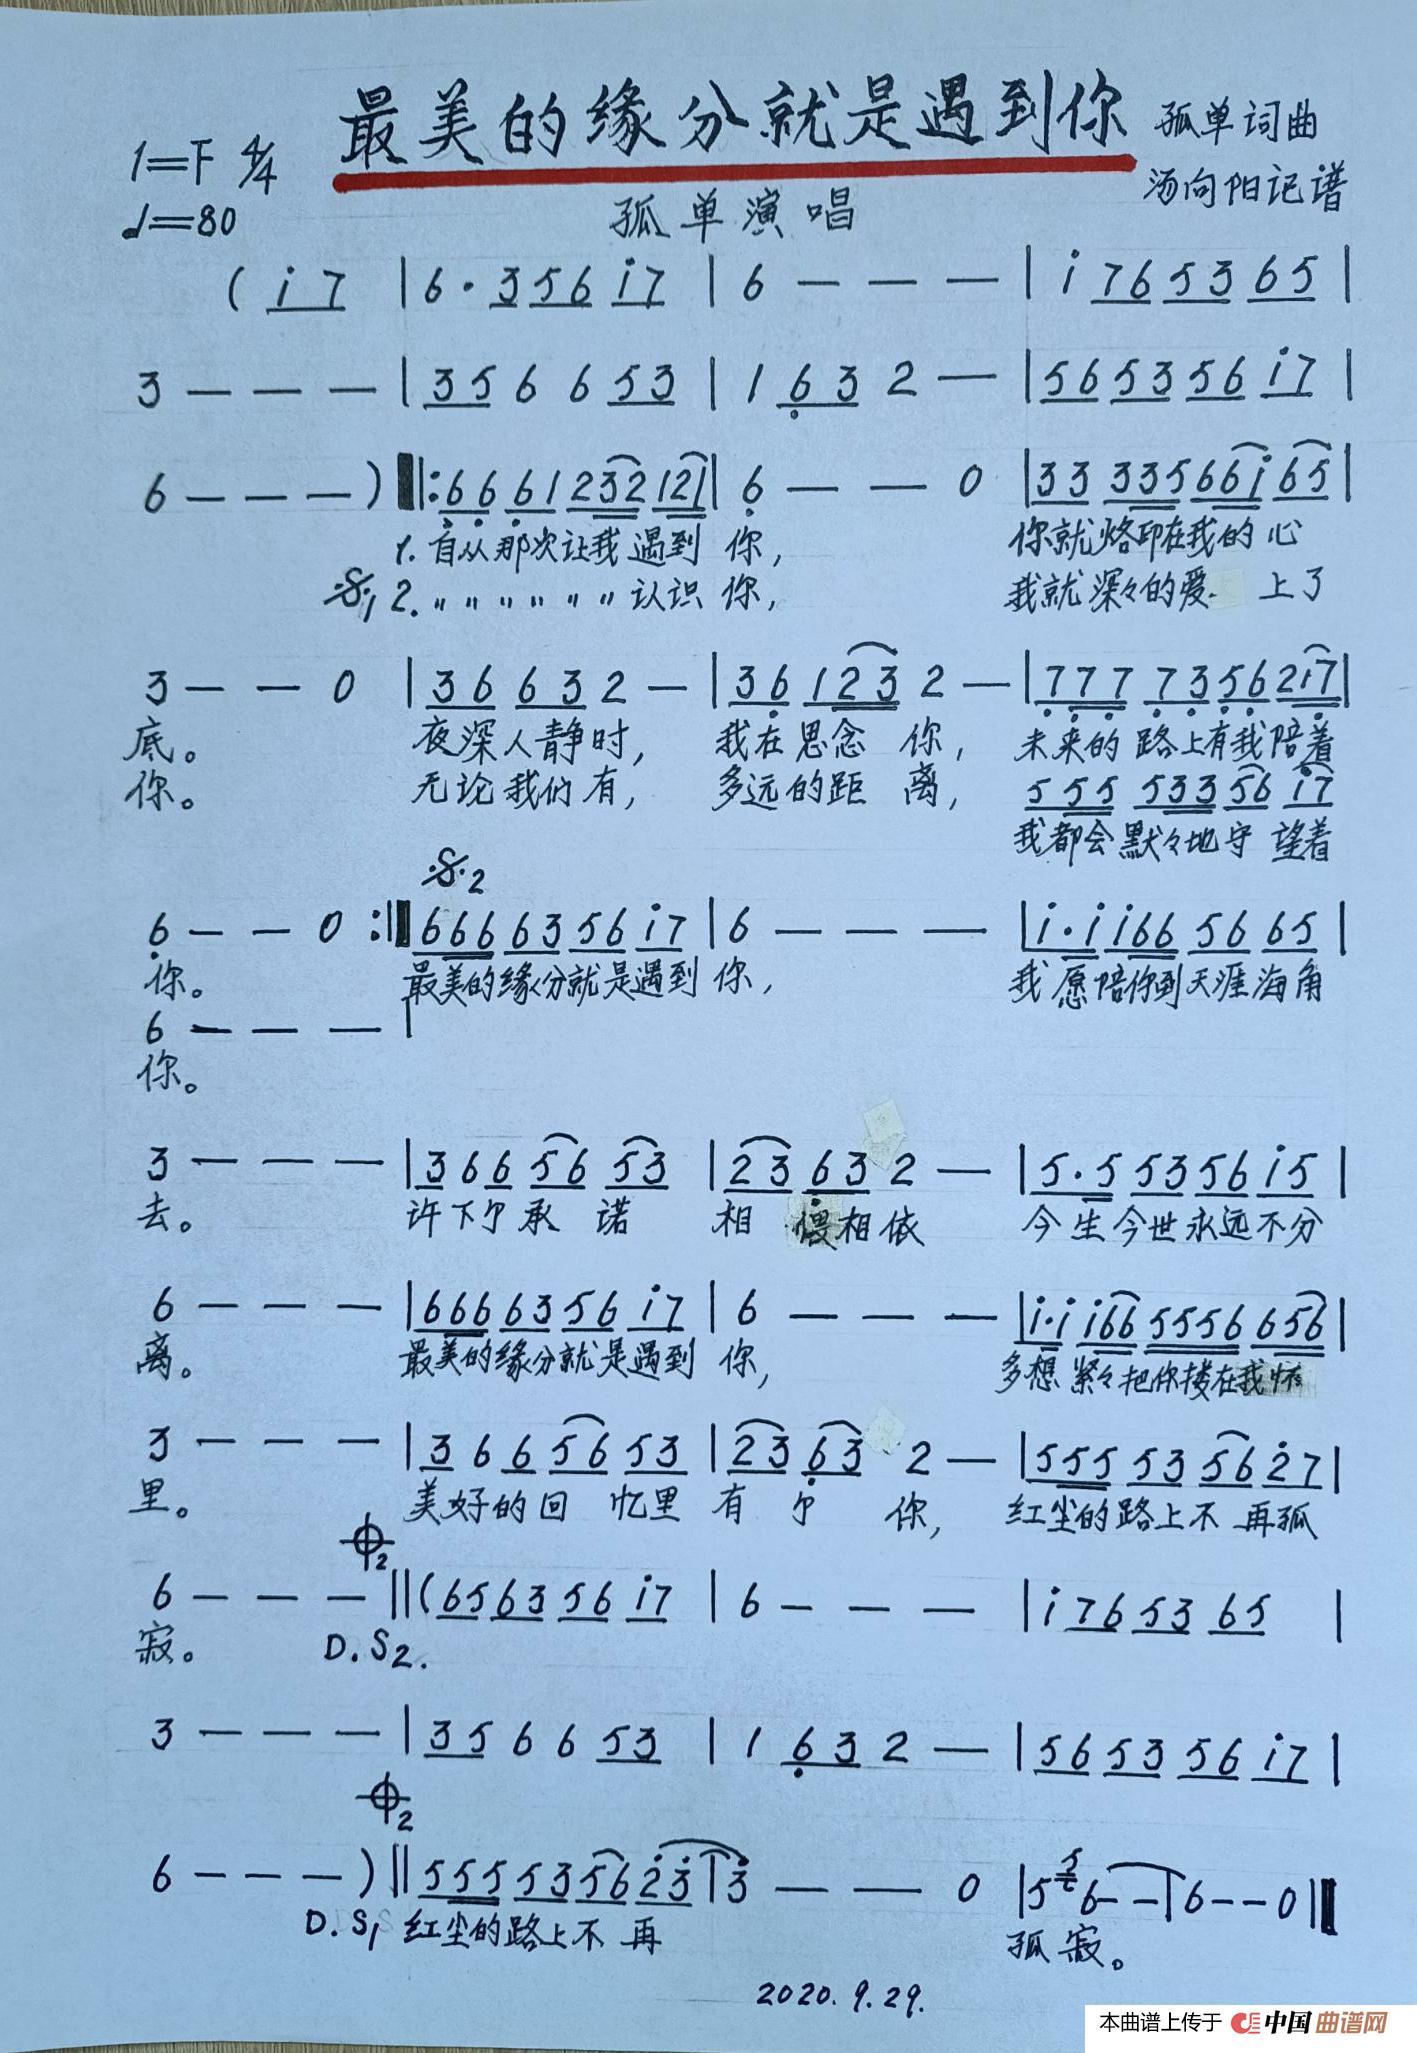 最美的缘分就是遇到你
孤单词曲
1=F 4/4
汤向阳记谱
♩=80
孤单演唱
( i 7 | 6 · 3 5 6 i 7 | 6 — — — | i 7 6 5 3 6 5 |
3 — — — | 3 5 6 6 5 3 | 1 6 3 2 — | 5 6 5 3 5 6 i 7 |
6 — — — ) ‖: 6 6 6 1 2 3 2 1 2 1 | 6 — — 0 | 3 3 3 3 5 6 6 i 6 5 |
1. 自从那次让我遇到 你, 你就烙印在我的心
𝄋1 2. 〃 〃 〃 〃 〃 〃 认识 你, 我就深々的爱 上了
3 — — 0 | 3 6 6 3 2 — | 3 6 1 2 3 2 — | 7 7 7 7 3 5 6 2 i 7 |
底。 夜深人静时, 我在思念 你, 未来的路上有我陪着
你。 无论我们有, 多远的距 离, 5 5 5 5 3 3 5 6 i 7
我都会默々地守 望着
𝄋2
6 — — 0 :‖ 6 6 6 6 3 5 6 i 7 | 6 — — — | i · i i 6 6 5 6 6 5 |
你。 最美的缘分就是遇到 你, 我愿陪你到天涯海角
6 — — — |
你。
3 — — — | 3 6 6 5 6 5 3 | 2 3 6 3 2 — | 5 · 5 5 3 5 6 i 5 |
去。 许下了承 诺 相 偎相依 今生今世永远不分
6 — — — | 6 6 6 6 3 5 6 i 7 | 6 — — — | i · i i 6 6 5 5 5 6 6 5 6 |
离。 最美的缘分就是遇到 你, 多想紧々把你搂在我怀
3 — — — | 3 6 6 5 6 5 3 | 2 3 6 3 2 — | 5 5 5 5 3 5 6 2 7 |
里。 美好的回 忆里 有 了 你, 红尘的路上不 再孤
𝄌2
6 — — — ‖ ( 6 5 6 3 5 6 i 7 | 6 — — — | i 7 6 5 3 6 5 |
寂。 D.S2.
3 — — — | 3 5 6 6 5 3 | 1 6 3 2 — | 5 6 5 3 5 6 i 7 |
𝄌2
6 — — — ) ‖ 5 5 5 5 3 5 6 2 3 | 3 — — 0 | 5 5 6 — — | 6 — — 0 ‖
D.S1 红尘的路上不 再 孤 寂。
2020.9.29.
本曲谱上传于 中国曲谱网